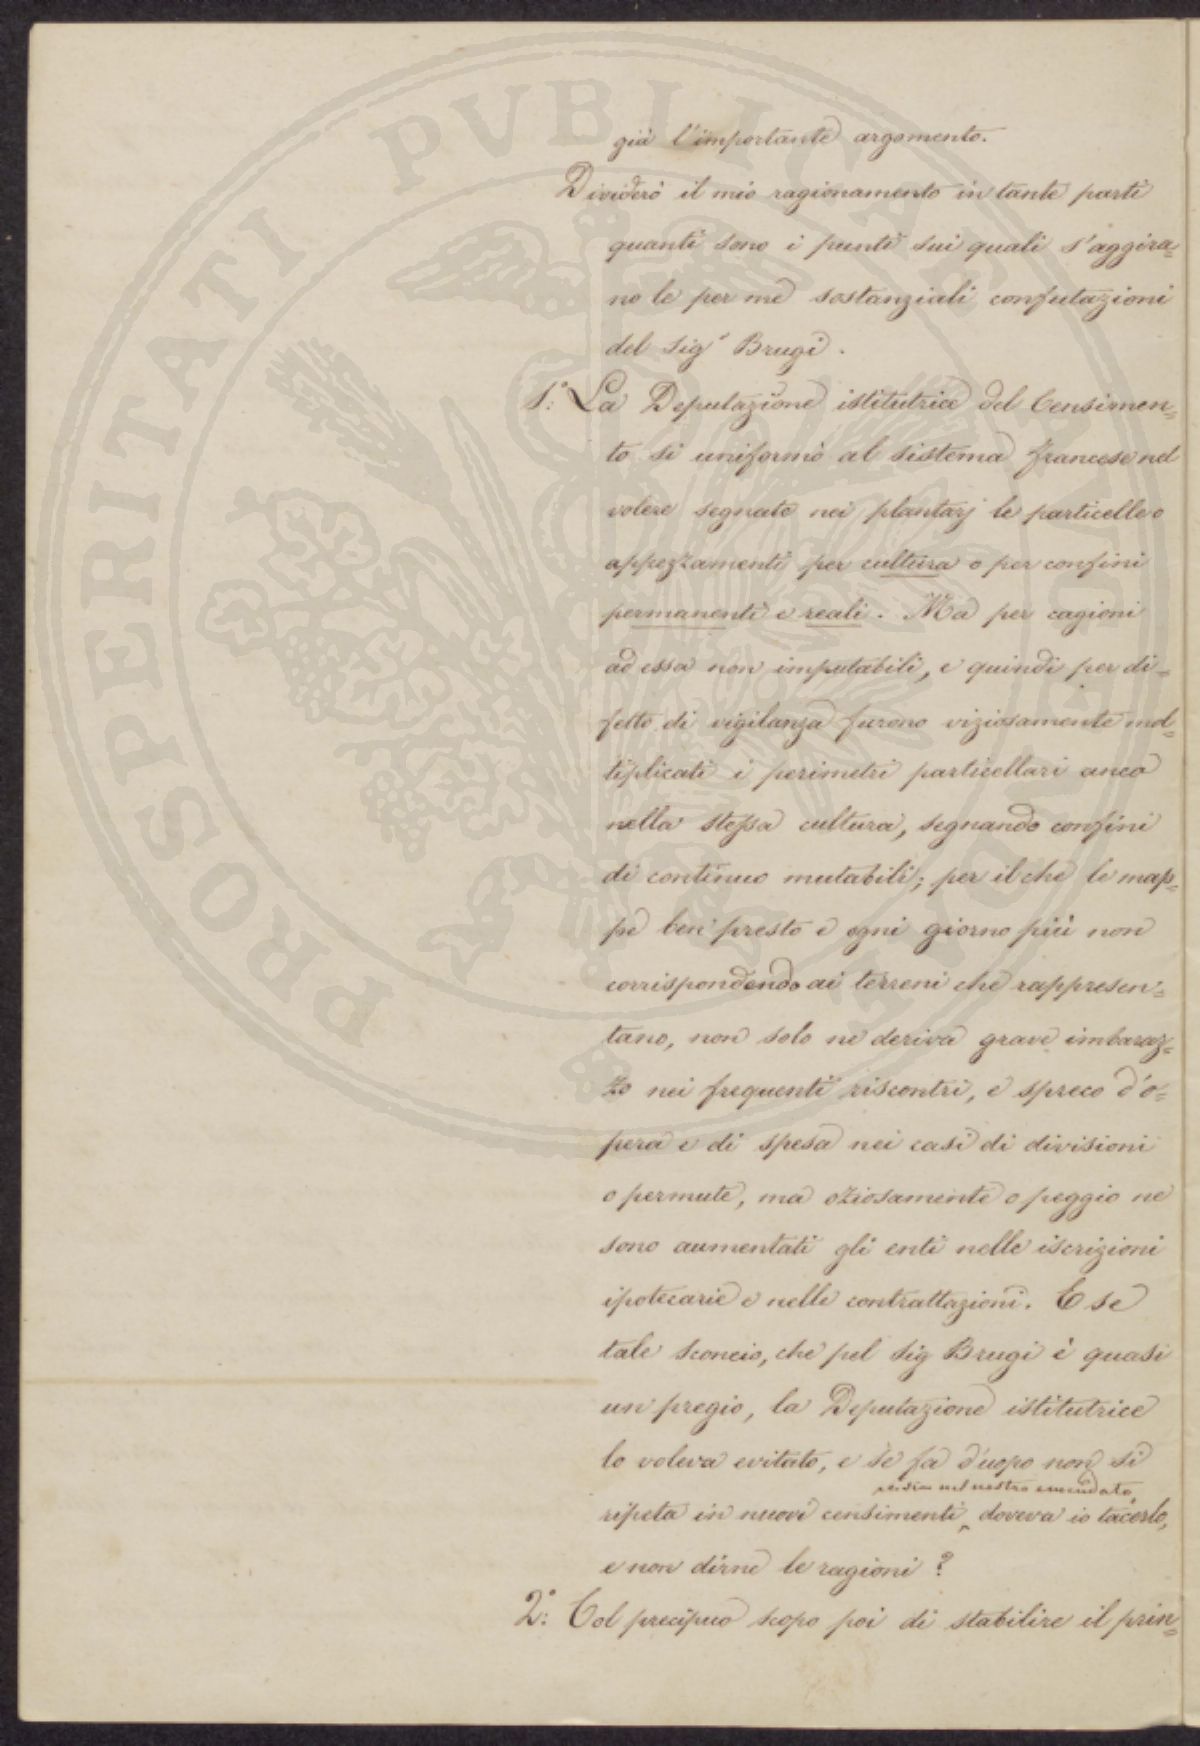 già l'importante argomento.
Dividerò il mio ragionamento in tante parti
quanti sono i punti sui quali s'aggira=
no le per me sostanziali confutazioni
del Sig.r Brugi.
1.° La Deputazione istitutrice del Censimen=
to si uniformò al sistema francese nel
volere segnate nei plantarj le particelle o
appezzamenti per cultura o per confini
permanenti e reali. Ma per cagioni
ad essa non imputabili, e quindi per di=
fetto di vigilanza furono viziosamente mol=
tiplicati i perimetri particellari anco
nella stessa cultura, segnando confini
di continuo mutabili; per il che le map=
pe ben presto e ogni giorno più non
corrispondendo ai terreni che rappresen=
tano, non solo ne deriva grave imbaraz=
zo nei frequenti riscontri, e spreco d'o=
pera e di spesa nei casi di divisioni
o permute, ma oziosamente o peggio ne
sono aumentati gli enti nelle iscrizioni
ipotecarie e nelle contrattazioni. E se
tale sconcio, che pel Sig Brugi è quasi
un pregio, la Deputazione istitutrice
lo voleva evitato, e se fa d'uopo non si
nel nostro emendato,
ripeta in nuovi censimenti doveva io tacerlo,
e non dirne le ragioni?
2.° Col precipuo scopo poi di stabilire il prin=
PROSPERITATI PVBLICAE